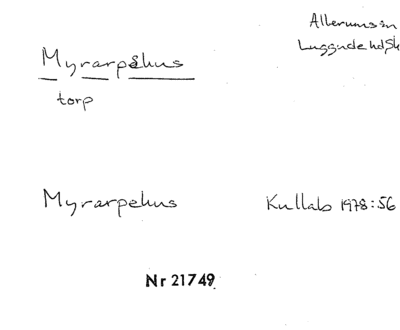 Allerums sn
Luggude hd Sk
Myrarpshus
torp
Myrarpehus
Kullab 1978:56
Nr 21749